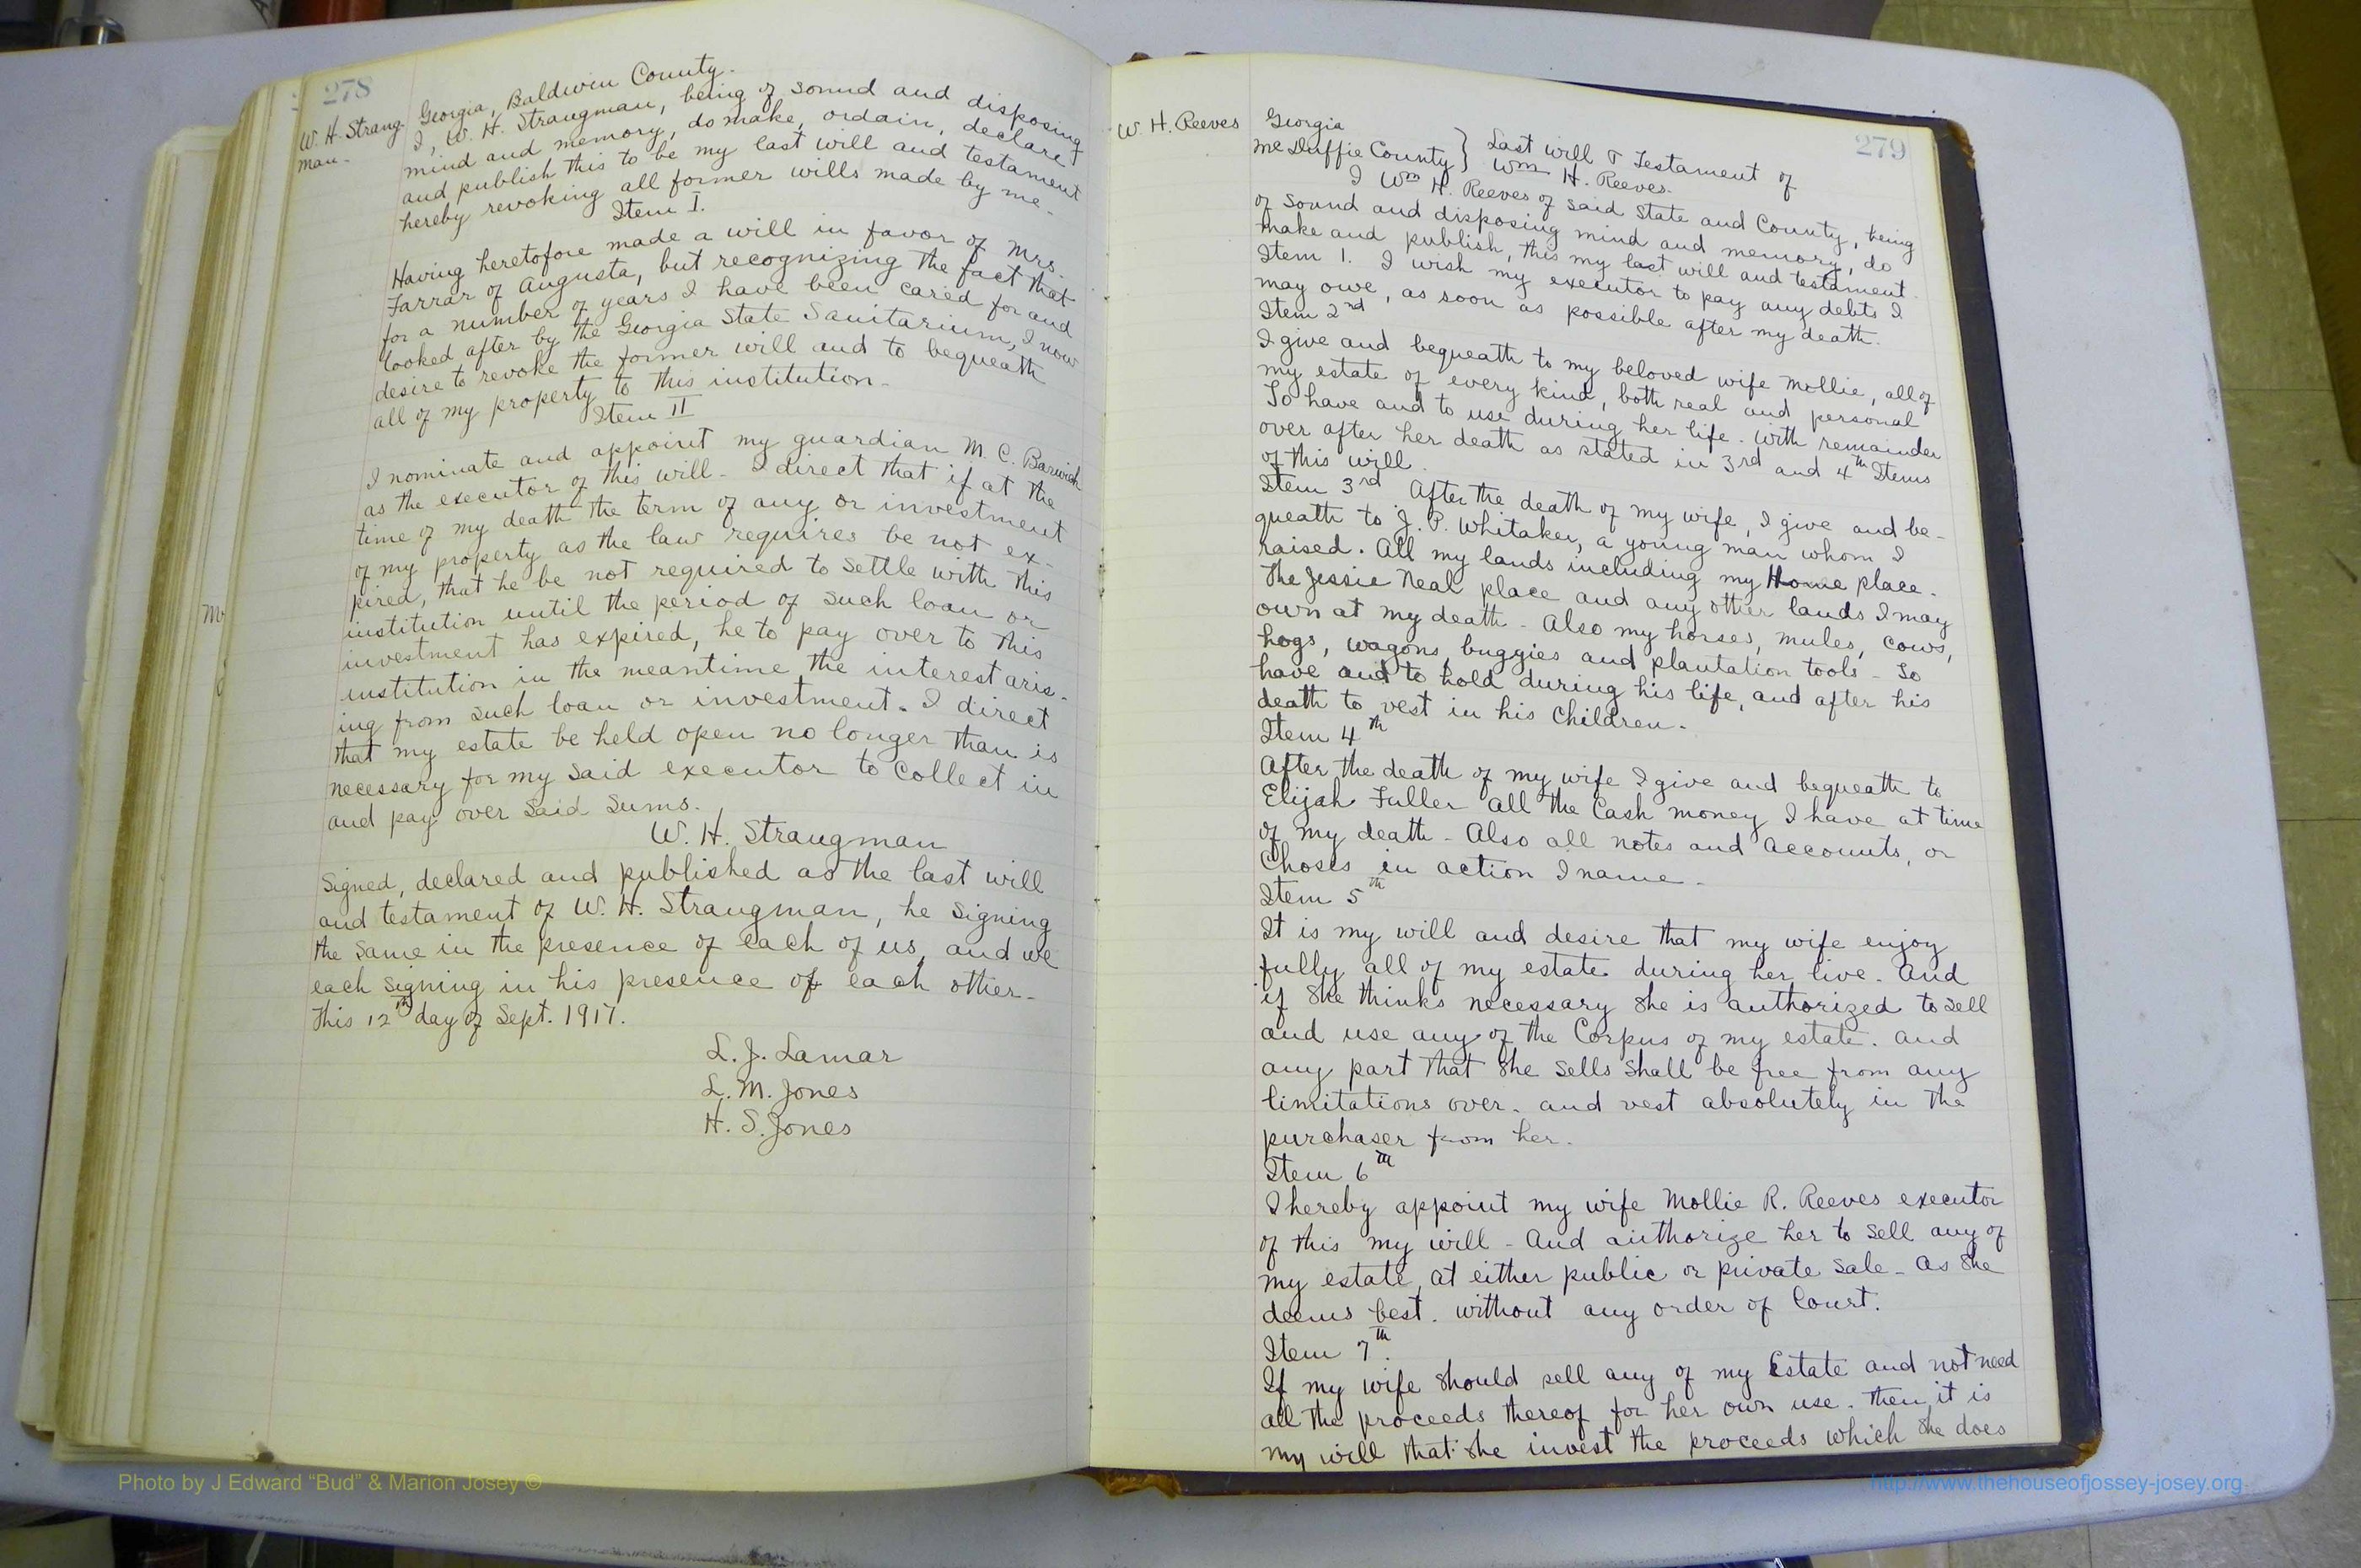 278
W. H. Strang-
man-
Georgia, Baldwin County.
I, W. H. Strangman, being of sound and disposing
mind and memory, do make, ordain, declare
and publish this to be my last will and testament
hereby revoking all former wills made by me-
Item I.
Having heretofore made a will in favor of Mrs.
Farrar of Augusta, but recognizing the fact that
for a number of years I have been cared for and
looked after by the Georgia State Sanitarium, I now
desire to revoke the former will and to bequeath
all of my property to this institution-
Item II
I nominate and appoint my guardian M. C. Barwick
as the executor of this will- I direct that if at the
time of my death the term of any or investment
of my property as the law requires be not ex-
pired, that he be not required to settle with this
institution until the period of such loan or
investment has expired, he to pay over to this
institution in the meantime the interest aris-
ing from such loan or investment. I direct
that my estate be held open no longer than is
necessary for my said executor to collect in
and pay over said sums.
W. H. Strangman
Signed, declared and published as the last will
and testament of W. H. Strangman, he signing
the same in the presence of each of us, and we
each signing in his presence of each other-
This 12th day of Sept. 1917.
L. J. Lamar
L. M. Jones
H. S. Jones
279
W. H. Reeves
Georgia
McDuffie County } Last will & Testament of
Wm H. Reeves.
I Wm H. Reeves of said State and County, being
of sound and disposing mind and memory, do
make and publish, this my last will and testament.
Item 1. I wish my executor to pay any debts I
may owe, as soon as possible after my death.
Item 2nd
I give and bequeath to my beloved wife Mollie, all of
my estate of every kind, both real and personal
To have and to use during her life. with remainder
over after her death as stated in 3rd and 4th Items
of this will.
Item 3rd After the death of my wife, I give and be-
queath to J. P. Whitaker, a young man whom I
raised. All my lands including my Home place.
The Jessie Neal place and any other lands I may
own at my death- Also my horses, mules, cows,
hogs, wagons, buggies and plantation tools- To
have and to hold during his life, and after his
death to vest in his Children.
Item 4th
After the death of my wife I give and bequeath to
Elijah Fuller all the Cash money I have at time
of my death- Also all notes and accounts, or
Choses in action I name-
Item 5th
It is my will and desire that my wife enjoy
fully all of my estate during her live. And
if she thinks necessary she is authorized to sell
and use any of the Corpus of my estate. and
any part that she sells shall be free from any
limitations over. and vest absolutely in the
purchaser from her.
Item 6th
I hereby appoint my wife Mollie R. Reeves executor
of this my will- And authorize her to sell any of
my estate, at either public or private sale- As she
deems best. without any order of Court.
Item 7th.
If my wife should sell any of my Estate and not need
all the proceeds thereof for her own use. then, it is
my will that she invest the proceeds which she does
Photo by J Edward “Bud” & Marion Josey ©
http://www.thehouseofjossey-josey.org